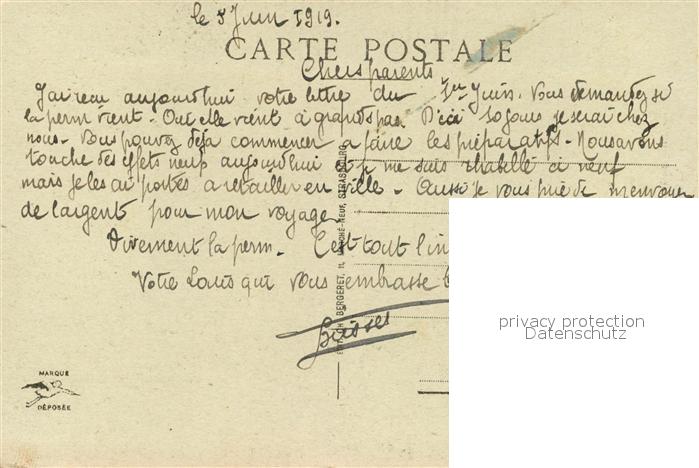 le 5 Juin 1919.
CARTE POSTALE
Chers parents
J'ai reçu aujourd'hui votre lettre du 1er Juin. Vous demandez si
la perm vient. Oui elle vient à grands pas. D'ici 10 jours je serai chez
nous. Vous pouvez déjà commencer a faire les préparatifs. Nous avons
touché des effet neufs aujourd'hui et je me suis rhabillé à neuf
mais je les ai portés a retailler en ville. Aussi je vous prie de m'envoyer
de l'argent pour mon voyage.
Vivement la perm. C'est tout
Votre Louis qui vous embrasse
Baisses
BERGERET, 11, MARCHÉ-NEUF, STRASBOURG
MARQUE
DÉPOSÉE
privacy protection
Datenschutz